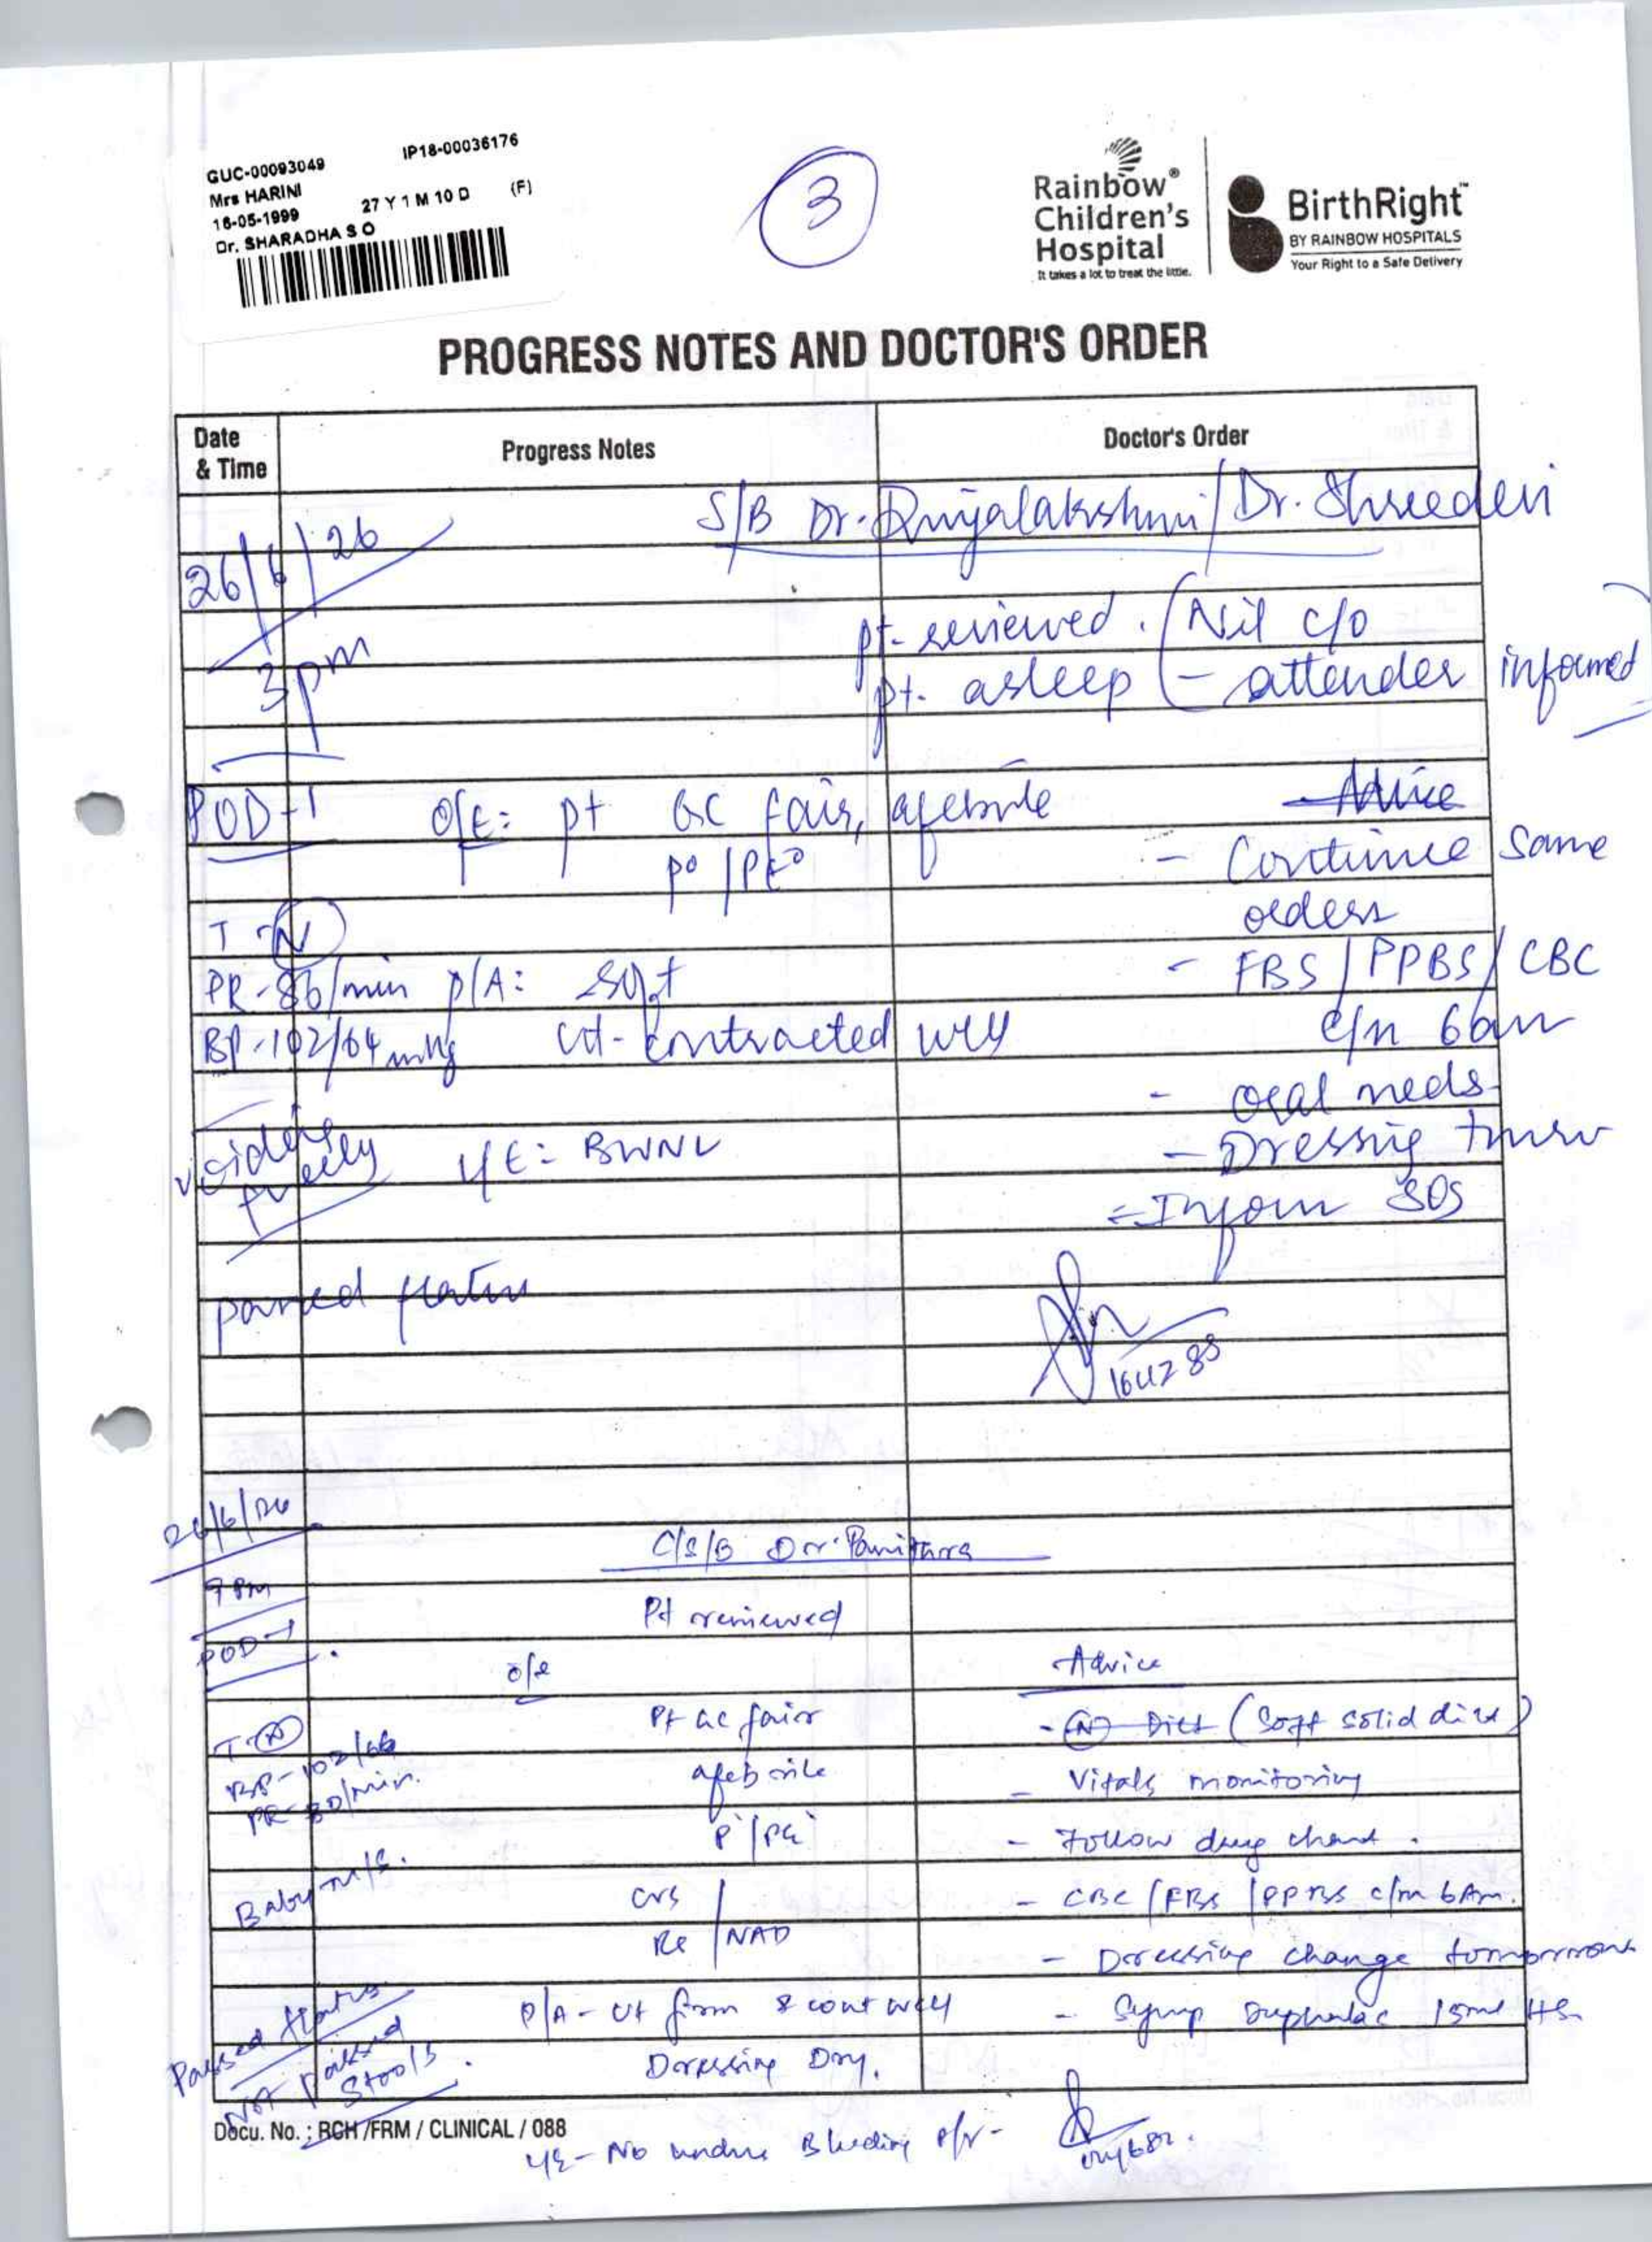 GUC-00093049 IP18-00036176
Mrs HARINI
16-05-1999 27 Y 1 M 10 D (F)
Dr. SHARADHA S O
3
Rainbow®
Children's
Hospital
It takes a lot to treat the little.
BirthRight™
BY RAINBOW HOSPITALS
Your Right to a Safe Delivery
PROGRESS NOTES AND DOCTOR'S ORDER
Date & Time Progress Notes Doctor's Order
S/B Dr. / Dr. Shreedevi
26/6/26
3pm
pt. reviewed. (Nil c/o
pt. asleep - attender informed)
POD-1 O/E: pt GC fair, afebrile Advice
P° / PE° - Continue same
orders
T - N
PR - 86/min P/A: soft - FBS / PPBS / CBC
BP - 102/64 mmHg Ut - contracted well c/m 6am
- Oral meds
voiding freely L/E: BWNL - Dressing tmrw
- Inform SOS
passed flatus
164288
26/6/26
C/S/B Dr. Pavithra
9 Pm
Pt reviewed
POD-1
o/e Advice
Pt GC fair - N Diet (Soft solid diet)
T - N
BP - 102/66 afebrile - Vitals monitoring
PR - 80/min.
P° / PE° - Follow drug chart.
Baby m/s. CVS - CBC / FBS / PPBS c/m 6Am.
RS / NAD
- Dressing change tomorrow
Passed flatus P/A - Ut firm & cont well - Syrup Duphalac 15ml HS
Not passed stools. Dressing Dry.
Docu. No. : RCH /FRM / CLINICAL / 088
L/E - No undue Bleeding P/V -